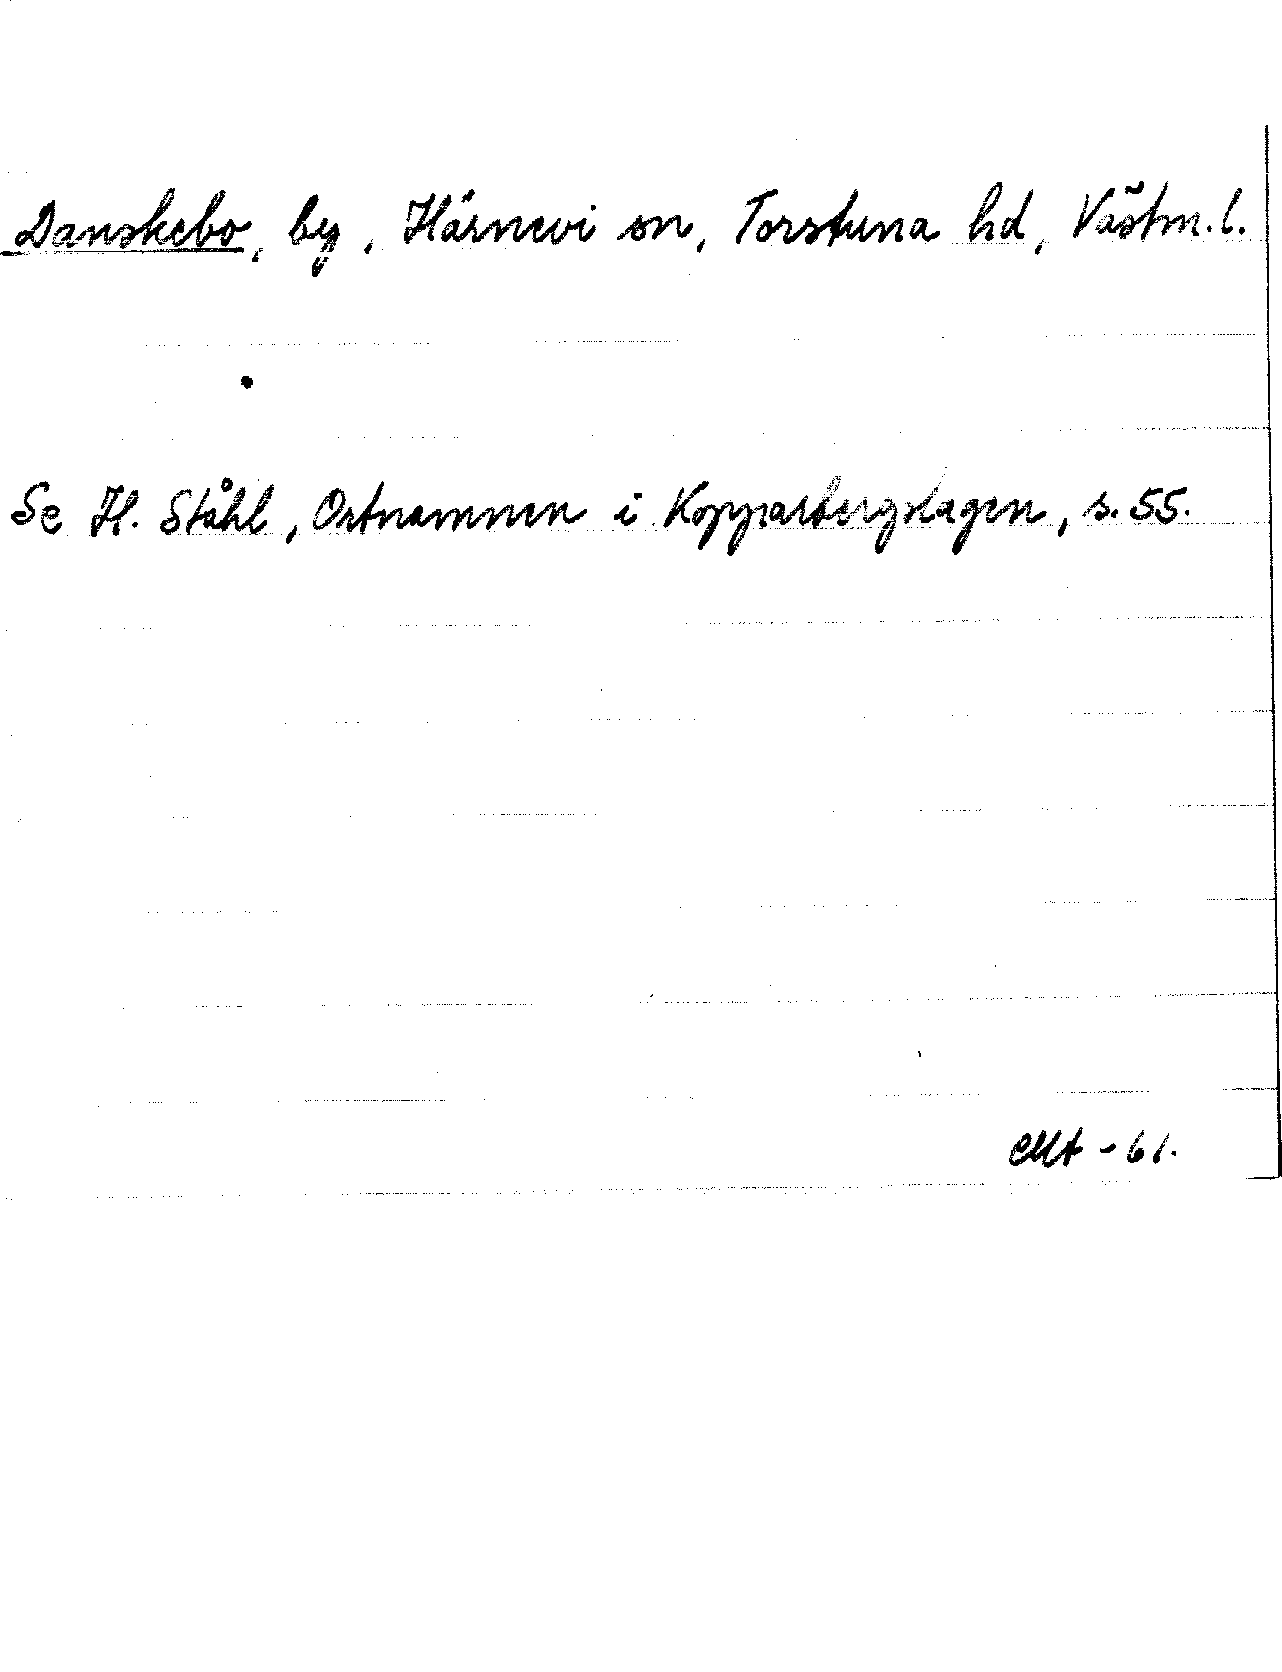 Danskebo, by, Härnevi sn, Torstuna hd, Västm. l.
Se H. Ståhl, Ortnamnen i Kopparbergslagen, s. 55.
CMA - 61.